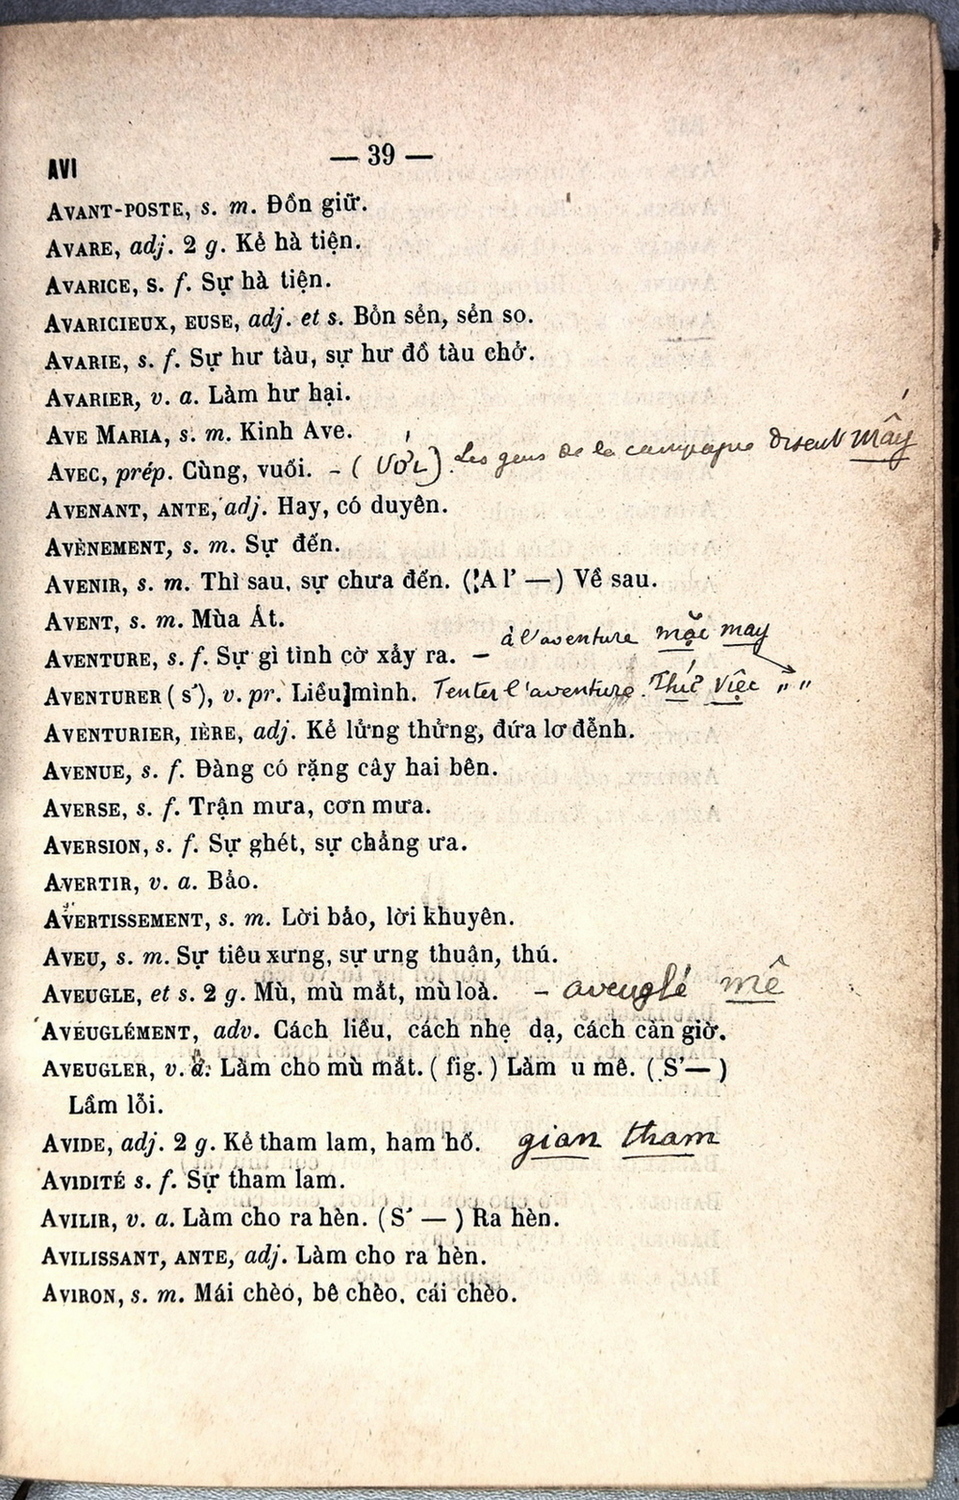 AVI — 39 —
AVANT-POSTE, s. m. Đồn giữ.
AVARE, adj. 2 g. Kẻ hà tiện.
AVARICE, s. f. Sự hà tiện.
AVARICIEUX, EUSE, adj. et s. Bỏn sẻn, sẻn so.
AVARIE, s. f. Sự hư tàu, sự hư đồ tàu chở.
AVARIER, v. a. Làm hư hại.
AVE MARIA, s. m. Kinh Ave.
AVEC, prép. Cùng, vuối. - (Với). Les gens de la campagne disent mấy
AVENANT, ANTE, adj. Hay, có duyên.
AVÈNEMENT, s. m. Sự đến.
AVENIR, s. m. Thì sau, sự chưa đến. (A l' —) Về sau.
AVENT, s. m. Mùa Át.
AVENTURE, s. f. Sự gì tình cờ xảy ra. — à l'aventure mặc may
AVENTURER (s'), v. pr. Liều mình. Tenter l'aventure. Thử việc " "
AVENTURIER, IÈRE, adj. Kẻ lửng thửng, đứa lơ đễnh.
AVENUE, s. f. Đàng có rặng cây hai bên.
AVERSE, s. f. Trận mưa, cơn mưa.
AVERSION, s. f. Sự ghét, sự chẳng ưa.
AVERTIR, v. a. Bảo.
AVERTISSEMENT, s. m. Lời bảo, lời khuyên.
AVEU, s. m. Sự tiêu xưng, sự ưng thuận, thú.
AVEUGLE, et s. 2 g. Mù, mù mắt, mù loà. - aveuglé mê
AVEUGLÉMENT, adv. Cách liều, cách nhẹ dạ, cách càn giở.
AVEUGLER, v. a. Làm cho mù mắt. (fig.) Làm u mê. (S'—)
Lầm lỗi.
AVIDE, adj. 2 g. Kẻ tham lam, ham hố. gian tham
AVIDITÉ s. f. Sự tham lam.
AVILIR, v. a. Làm cho ra hèn. (S' —) Ra hèn.
AVILISSANT, ANTE, adj. Làm cho ra hèn.
AVIRON, s. m. Mái chèo, bê chèo, cái chèo.